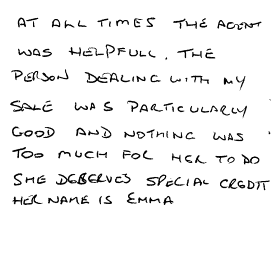 AT ALL TIMES THE AGENT
WAS HELPFULL, THE
PERSON DEALING WITH MY
SALE WAS PARTICULARLY
GOOD AND NOTHING WAS
TOO MUCH FOR HER TO DO
SHE DESERVES SPECIAL CREDIT
HER NAME IS EMMA